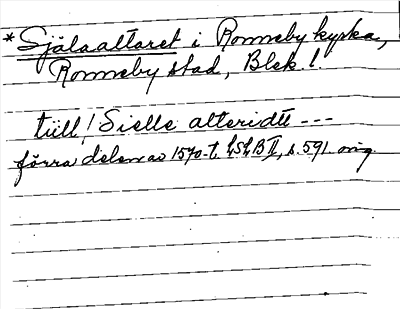 * Själaaltaret i Ronneby kyrka,
Ronneby stad, Blek.!
till! Sielle alteridtt ---
förra delen av 1570-t. LSLB II, s. 591. orig